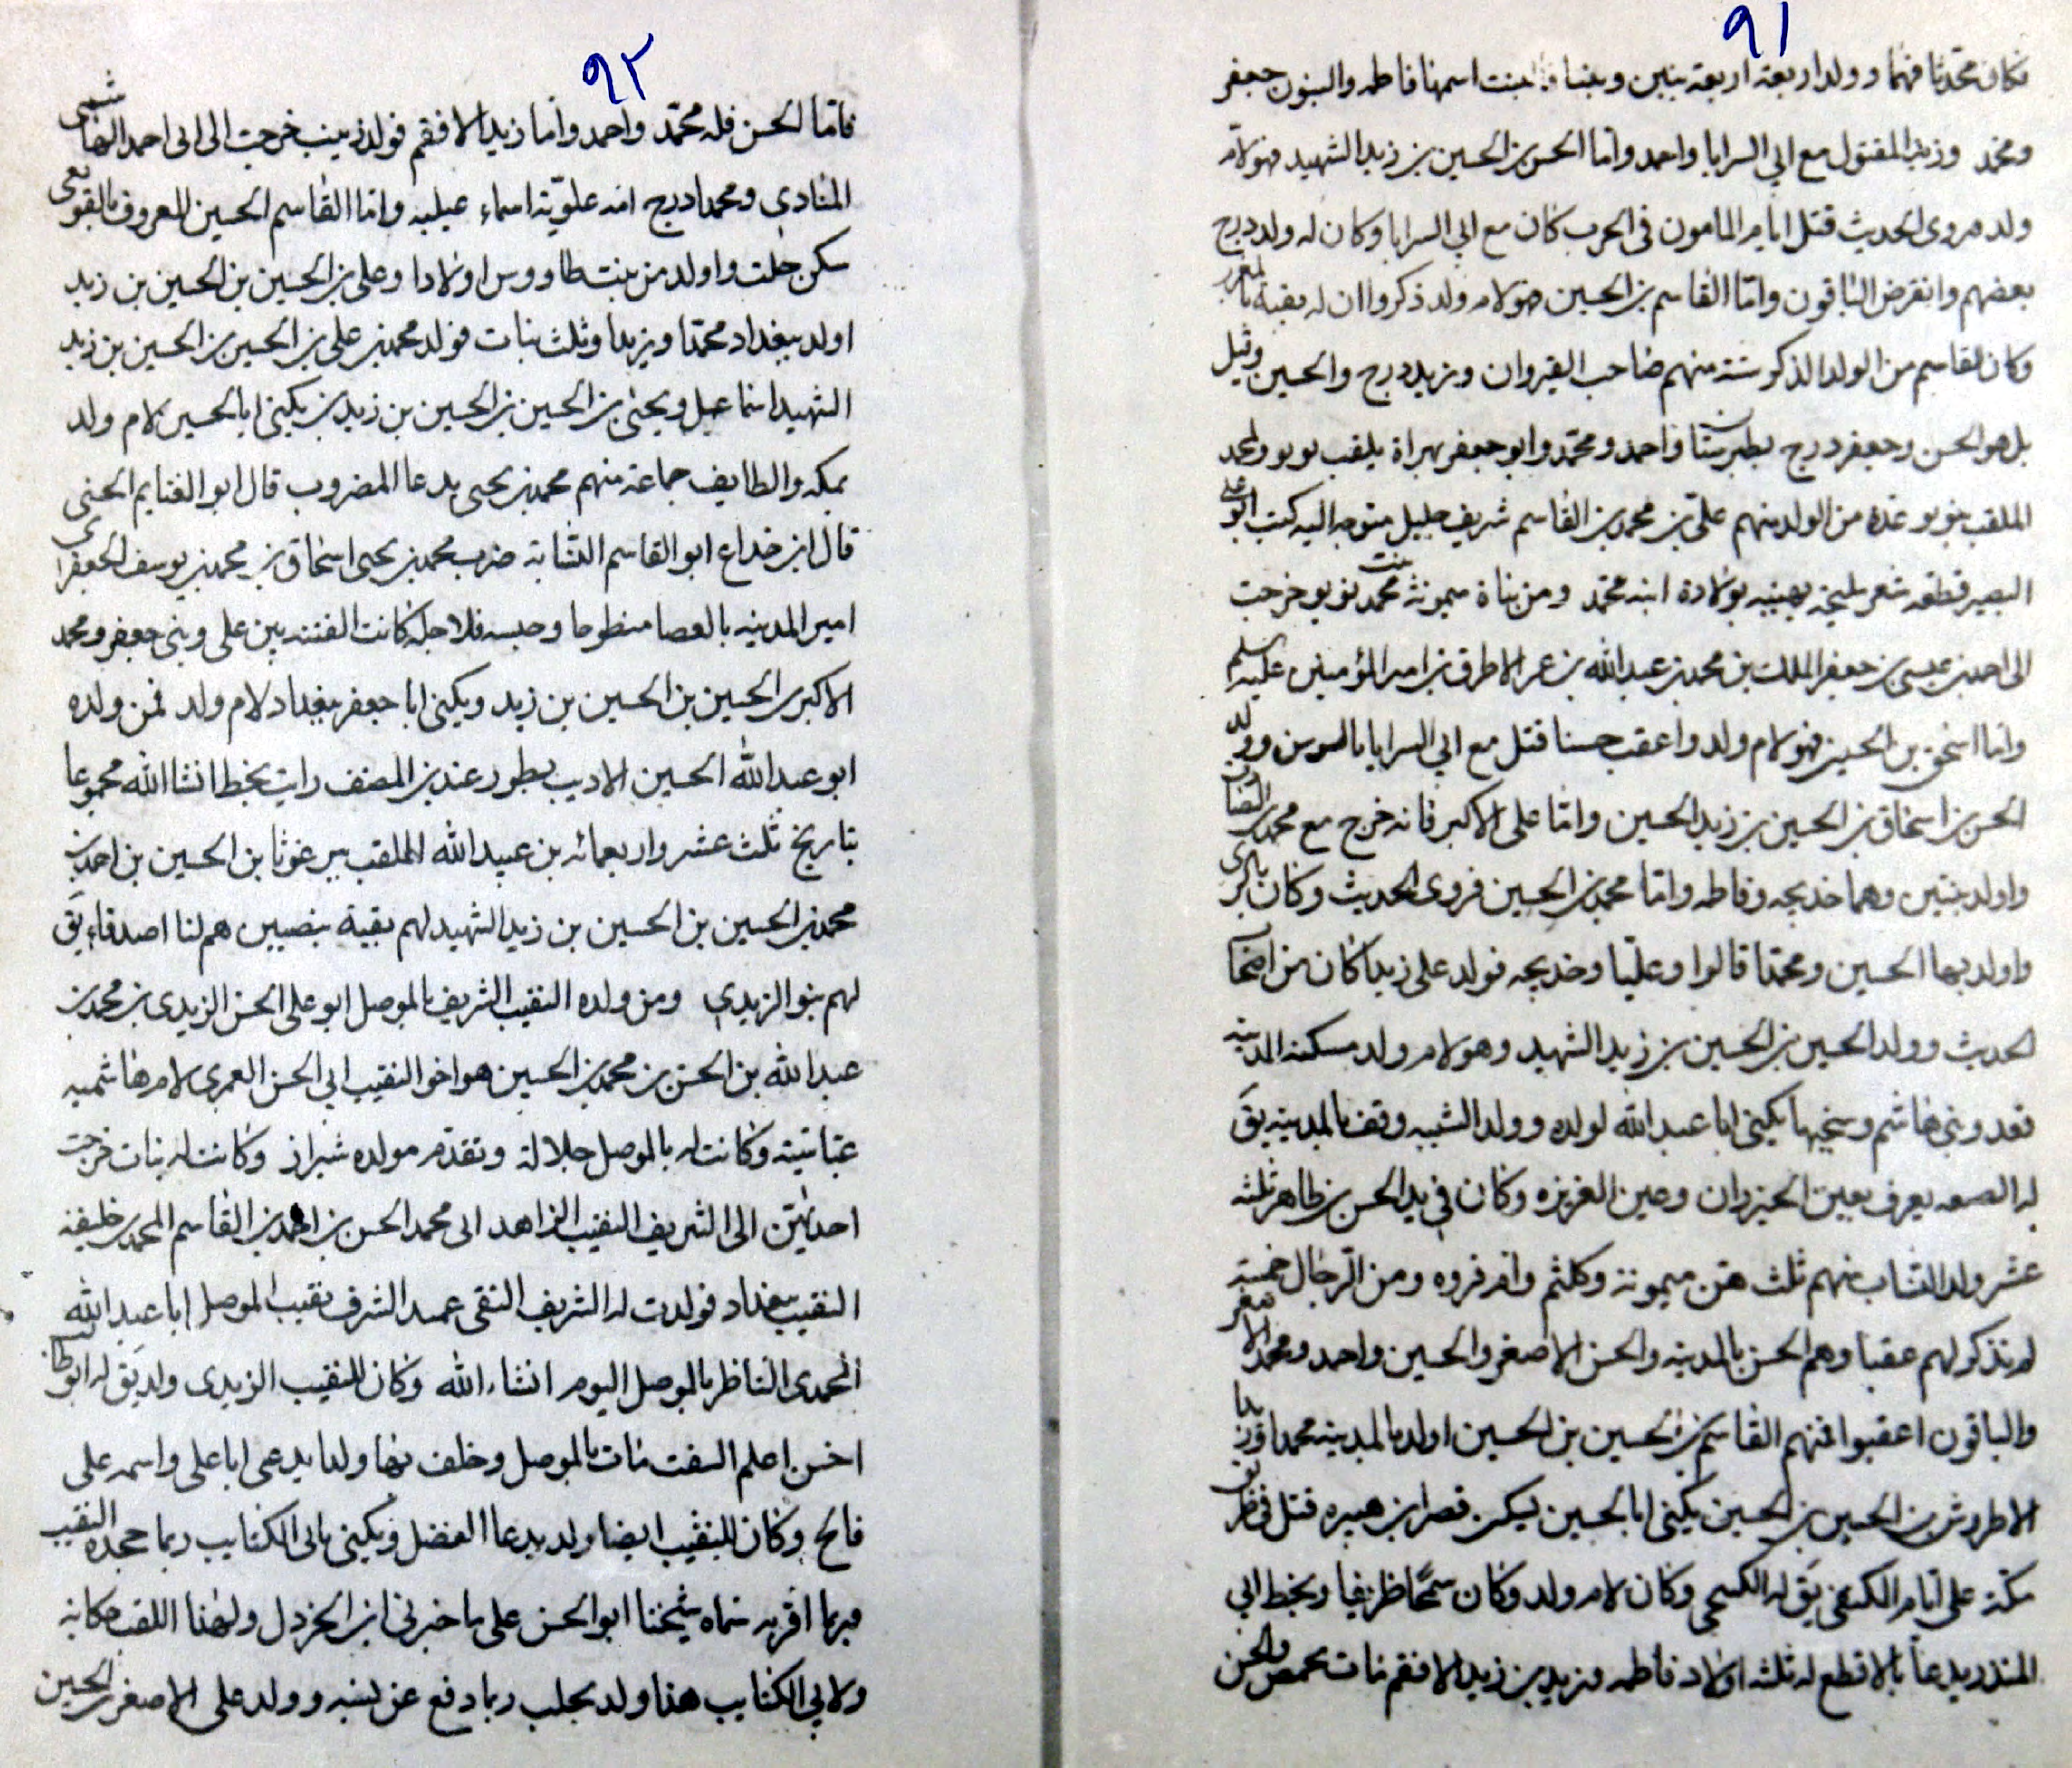 ٩١
فكان محدثا فهما وولد اربعة اربعة بنين وبنتا فالبنت اسمها فاطمه والبنون جعفر
ومحمد وزيد المقتول مع ابي السرايا واحمد واما الحسن بن الحسين بن زيد الشهيد فهو لام
ولد روى الحديث قتل ايام المامون في الحرب كان مع ابي السرايا وكان له ولد درج
بعضهم وانقرض الباقون واما القاسم بن الحسين فهو لام ولد ذكروا ان له بقية
وكان لقاسم من الولد الذكور ستة منهم صاحب القيروان وزيد درج والحسين وقيل
بل هو الحسن وجعفر درج بطبرستان واحمد ومحمد وابو جعفر بهراة يلقب بوبو ولمحمد
الملقب ببوبو عدة من الولد منهم علي بن محمد بن القاسم شريف جليل متوجه اليه كتب ابو علي
البصير قطعه شعر مليحة يهنيه بولادة ابنه محمد ومن بناة ميمونة بنت محمد بوبو خرجت
الى احمد بن عيسى بن جعفر الملك بن محمد بن عبد الله بن عمر الاطرف بن امير المؤمنين عليه سلم
واما اسحق بن الحسين فهو لام ولد واعقب حسنا قتل مع ابي السرايا بالسوس وولد
الحسن بن اسحاق بن الحسين بن زيد الحسين واما على الاكبر فانه خرج مع محمد بن الصادق
واولد بنتين وهما خديجه وفاطمه واما محمد بن الحسين فروى الحديث وكان بالري
واولد بها الحسين ومحمدا قالوا وعليا وخديجه فولد على زيدا كان من اصحا
الحديث وولد الحسين بن الحسين بن زيد الشهيد وهو لام ولد مسكنه المدينه
قعدد بني هاشم وسخيها يكنى ابا عبد الله لولده وولد الشبيه وقف بالمدينه يق
له الصعه يعرف بعين الخيزران وعين العزيزه وكان في يد الحسن بن طاهر ثلثه
عشر ولد الشاب منهم ثلث هن ميمونة وكلثم وام فروه ومن الرجال خمسة
لم نذكر لهم عقبا وهم الحسن بالمدينه والحسن الاصغر والحسين واحمد ومحمد الاصغر
والباقون اعقبوا فمنهم القاسم بن الحسين بن الحسين اولد بالمدينه محمدا وزيدا
الاطروش بن الحسين بن الحسين يكنى ابا الحسين ليسكن قصر ابن هبيره قتل في طريق
مكة على ايام الكعفي يق له الكسيحى وكان لام ولد وكان سمحا ظريفا وبخط ابي
المنذر يدعا بالاقطع له ثلثه اولاد فاطمه وزيد بن زيد الافقم مات بحمص والحسن
٩٢
فاما الحسن فله محمد واحمد واما زيد الافقم فولد زينب خرجت الى ابى احمد الهاشمى
المنادي ومحمدا درج امه علوية اسماء عيليه واما القاسم الحسين المعروف بالقويعى
سكن حلت واولد من بنت طاووس اولادا وعلى بن الحسين بن الحسين بن زيد
اولد ببغداد محمدا ويزيدا وثلث بنات فولد محمد بن على بن الحسين بن الحسين بن زيد
الشهيد اسماعيل ويحيى بن الحسين بن الحسين بن زيد بن يكنى ابا الحسين لام ولد
بمكه والطايف جماعة منهم محمد بن يحيى يدعا المضروب قال ابو الغنايم الحسنى
قال ابن خداع ابو القاسم النسابة ضرب محمد بن يحيى اسحاق بن محمد بن يوسف الجعفرى
امير المدينه بالعصا مبطوحا وحبسه فلاجله كانت الفتنه بين على وبنى جعفر ومحمد
الاكبر بن الحسين بن الحسين بن زيد ويكنى ابا جعفر ببغداد لام ولد فمن ولده
ابو عبد الله الحسين الاديب بطور عبدين المصنف رايت بخط انشا الله مجموعا
بتاريخ ثلث عشر واربعمائه بن عبيد الله الملقب ببرغوثا بن الحسين بن احمد بن
محمد بن الحسين بن الحسين بن زيد الشهيد لهم بقية بنصيبين هم لنا اصدقاء يق
لهم بنو الزيدي ومن ولده النقيب الشريف بالموصل ابو على الحسن الزيدى بن محمد بن
عبد الله بن الحسن بن محمد بن الحسين هو اخو النقيب ابي الحسن العمرى لام هاشميه
عباسية وكانت له بالموصل جلالة وتقدم مولده شيراز وكانت له بنات خرجت
احديهن الى الشريف النقيب الزاهد ابى محمد الحسن بن احمد بن القاسم المحمدى خليفة
النقيب ببغداد فولدت له الشريف التقى عميد الشرف نقيب الموصل ابا عبد الله
المحمدى الناظر بالموصل اليوم انشاء الله وكان للنقيب الزيدى ولد يق له ابو طا
اخس اعلم السفت مات بالموصل وخلف بها ولدا يدعى ابا على واسمه على
فاتح وكان للنقيب ايضا ولد يدعا الفضل ويكنى بابى الكتايب ربما جحده النقيب
فربما اقر به سماه شيخنا ابو الحسن على ما خبرنى ابن الخردل ولهذا اللقب حكاية
ولابي الكتايب هذا ولد بحلب ربما دفع عن نسبه وولد على الاصغر بن الحسين